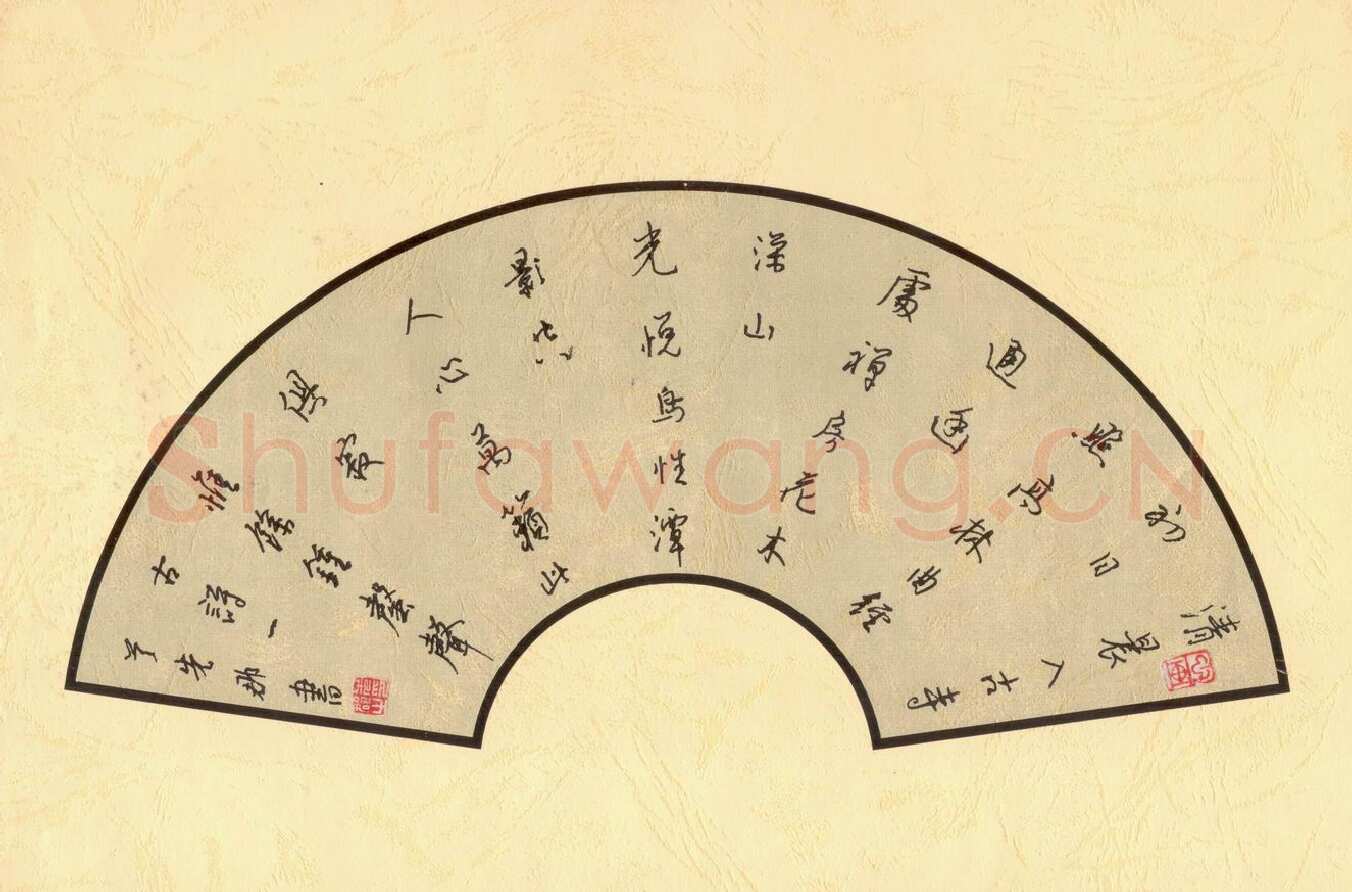 清晨入古寺
初日
照高林曲徑
通幽
處禪房花木
深山
光悅鳥性潭
影空
人心萬籟此
俱寂
惟餘鐘磬聲
古詩一
先書
Shufawang.CN